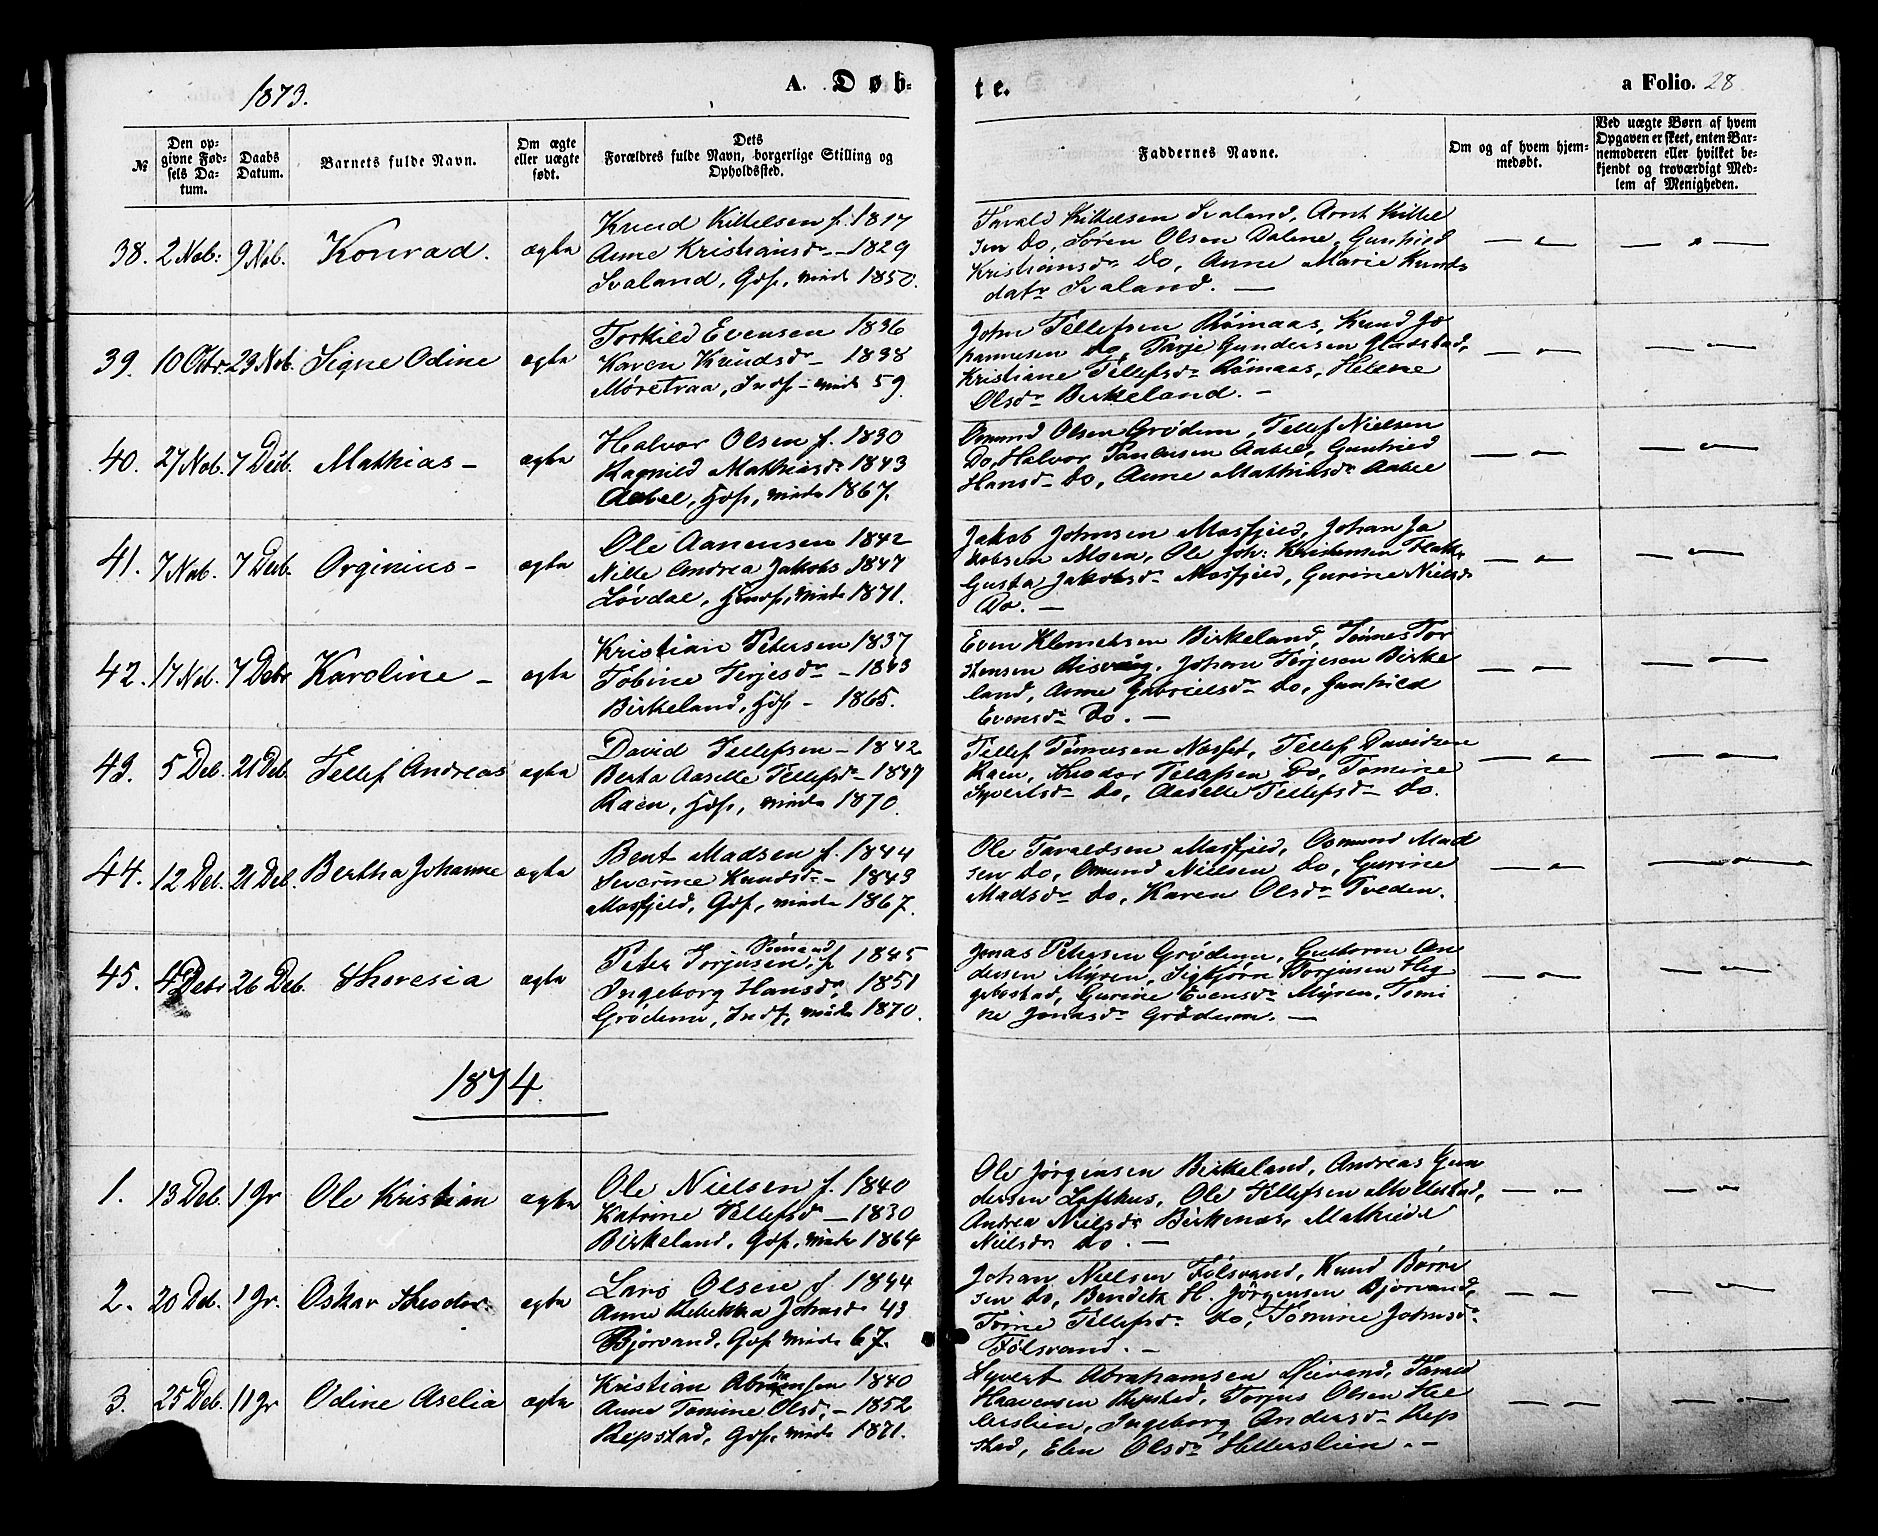 1873.
A. Døb-
te.
a Folio. 28
№
Den op-
givne Fød-
sels Da-
tum.
Daabs
Datum.
Barnets fulde Navn.
Om ægte
eller uægte
født.
Dets
Forældres fulde Navn, borgerlige Stilling og
Opholdssted.
Faddernes Navne.
Om og af hvem hjem-
medøbt.
Ved uægte Børn af hvem
Opgaven er skeet, enten Bar-
nemoderen eller hvilket be-
kjendt og troværdigt Med-
lem af Menigheden.
38. 2 Nob: 9 Nob. Konrad. ægte
Knud Kittelsen f. 1817
Anne Kristiansdr - 1829
Svaland, Gdf, inde 1850.
Tarald Kittelsen Svaland, Arnt Kittel
sen Do, Søren Olsen Dalene, Gunhild
Kristiansdr Do, Anne Marie Knuds
datr Svaland. —
39. 10 Octbr 23 Nob. Signe Odine ægte
Torkild Evensen 1836
Karen Knudsdr - 1838
Møretraa, Indf - inde 59.
John Tellefsen Rømaas, Knud Jo
hannesen Do, Tarje Gundersen Gladstad,
Kristiane Tellefsdr Rømaas, Helene
Olsdr Birkeland. -
40. 27 Nob. 7 Deb. Mathias - ægte
Halvor Olsen f. 1830
Ragnild Mathiasdr 1843
Aabel, Gdf, inde 1867.
Omund Olsen Grødem, Tellef Nielsen
Do, Halvor Aabel, Gunhild
Hansdr Do, Anne Mathiasdr Aabel
41. 7 Nob. 7 Deb. Orginius - ægte
Ole Aanensen 1842
Nille Andrea Jakobs 1847
Løvdal, inde 1871.
Jakob Johnsen Mosfjeld, Johan Ja
kobsen Moen, Ole Joh: Kristensen
Gusta Jakobsdr Mosfjeld, Gurine Nielsdr
Do. —
42. 17 Nob. 7 Debr Karoline - ægte
Kristian Petersen 1837
Tobine Terjesdr - 1843
Birkeland, Gdf - 1865.
Even Klemetsen Birkeland, Tønnes Tor
kensen Risvaag, Johan Terjesen Birke
land, Anne Gabrielsdr Do, Gunhild
Evensdr Do. —
43. 5 Deb. 21 Deb. Tellef Andreas ægte
David Tellefsen - 1842
Berta Aaselle Tellefsdr - 1847
Raen, Gdf, inde 1870.
Tellef Tønnesen Nosset, Tellef Davidsen
Raen, Theodor Tellefsen Do, Tomine
Syvertsdr Do, Aaselle Tellefsdr Do.
44. 12 Deb. 21 Deb. Bertha Johanne ægte
Bent Madsen f. 1844
Severine Knudsdr - 1843
Mosfjeld, Gdf, inde 1867.
Ole Taraldsen Mosfjeld, Osmund Mad
sen Do, Omund Nielsen Do, Gurine
Madsdr Do, Karen Olsdr Tveden.
45. 4 Debr 26 Deb. Theresia ægte
Peter Torjusen, f 1845
Ingeborg Hansdr, 1851
Grødem, Indf, inde 1870.
Jonas Petersen Grødem, Guttorm An
dersen Myren, Sigbjørn Torjusen Heg
gebostad, Gurine Evensdr Myren, Tomi
ne Jonasdr Grødem. —
1874.
1. 13 Deb. 1 Jr Ole Kristian ægte
Ole Nielsen f. 1840
Katrine Tellefsdr - 1830
Birkeland, Gdf, inde 1864
Ole Jørgensen Birkeland, Andreas Gun
dersen Lofthus, Ole Tellefsen Mollestad,
Andrea Nielsdr Birkenæs, Mathilde
Nielsdr Do. —
2. 20 Deb. 1 Jr. Oskar Theodor: ægte
Lars Olsen f. 1844
Anne Rebekka Johnsdr 43
Bjorvand, Gdf inde 67.
Johan Nielsen Følsvand, Knud Børre
sen Do, Bendik H. Jörgensen Bjorvand,
Tomine Johnsdr
Følsvand. -
3. 25 Deb. 11 Jr Odine Aselia ægte
Kristian Abrahamsen 1840
Anne Tomine Olsd, - 1852
Repstad, Gdf, inde 1871.
Syvert Abrahamsen Øievand, Tomes
Haavorsen Repstad, Torjus Olsen Hel
lerslien, Ingeborg Andersdr Rep
stad, Elen Olsdr Hellerslien. -